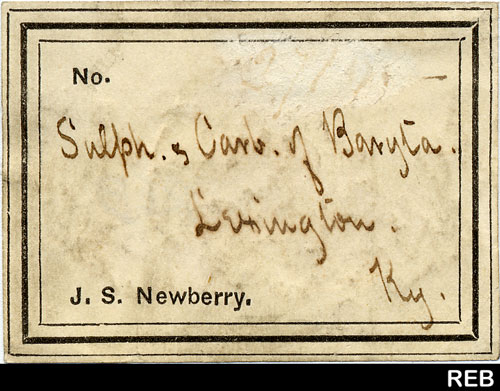 No.
Sulph. & Carb. of Baryta.
Lexington.
Ky.
J. S. Newberry.
REB